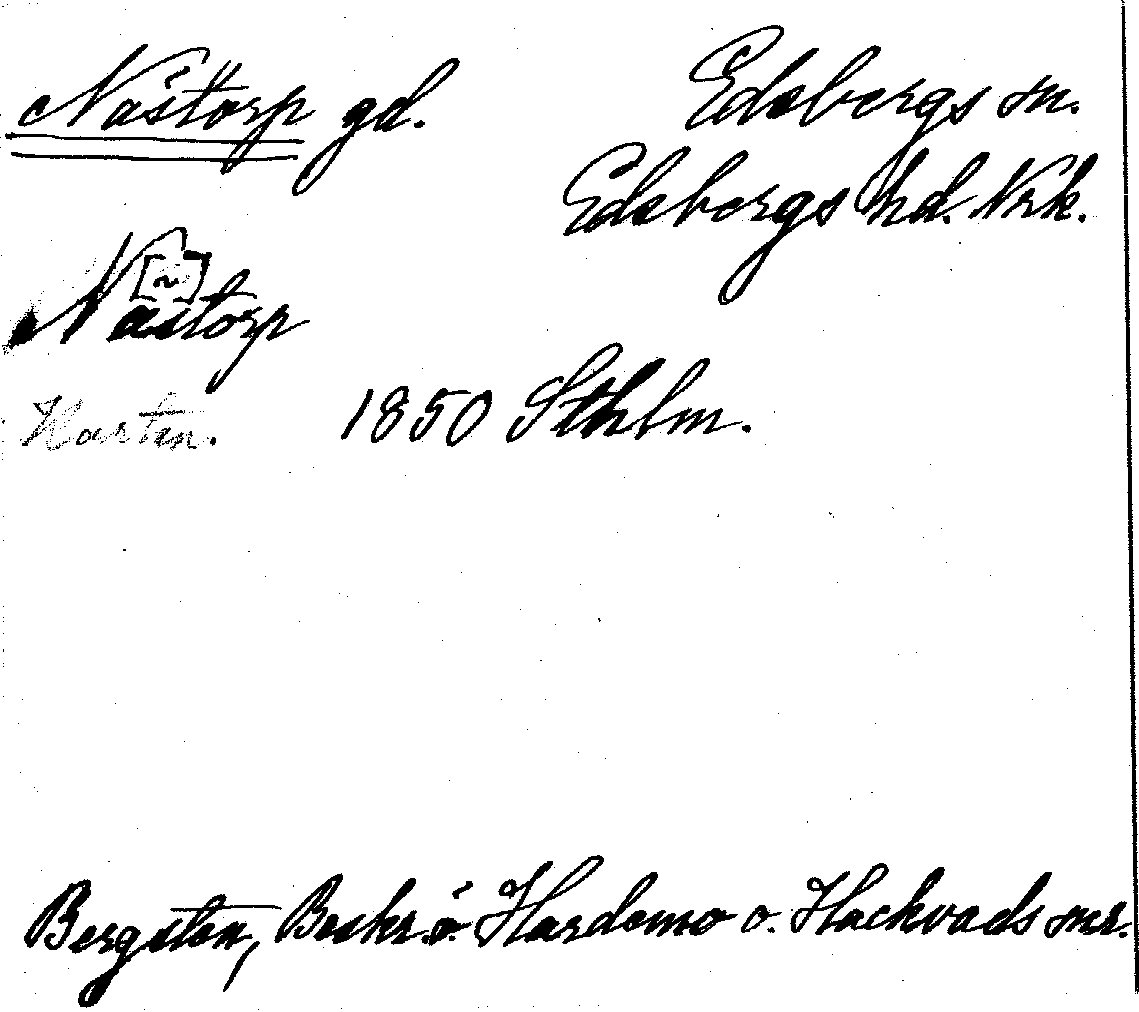 Nästorp gd. Edsbergs sn.
Edsbergs hd. Nrk.
[~]
Nastorp
Karten. 1850 Sthlm.
Bergsten, Beskr. ö. Hardemo o. Hackvads snr.